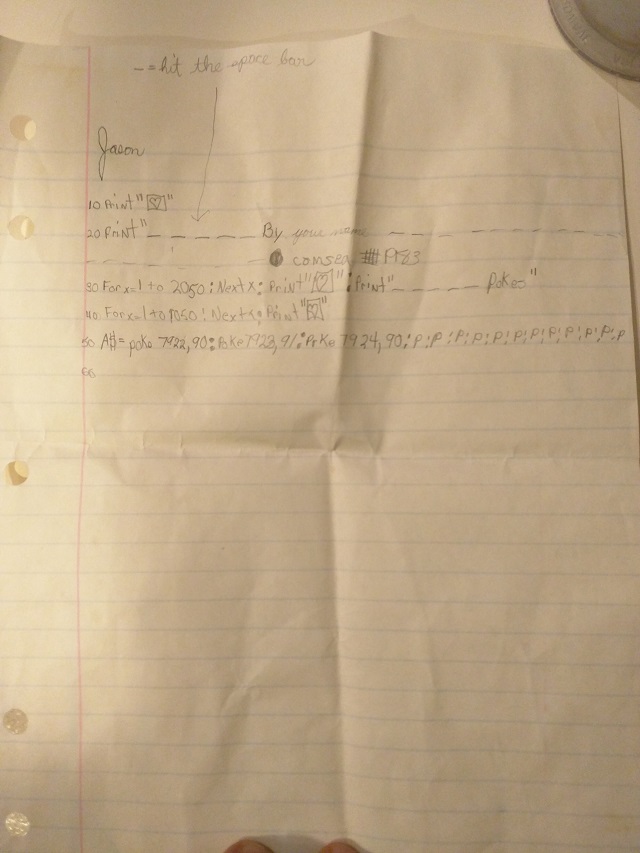 - = hit the space bar
Jason
10 Print "♡"
20 Print" _ _ _ _ _ _ _ By your name _ _ _ _ _ _ _ _ _ _
_ _ _ _ _ _ _ _ _ 1983
30 For x=1 to 2050: Next x: Print "♡": Print" _ _ _ _ _ Pokes"
40: For x=1 to 1050: Next x: Print "♡"
50 A$= poke 7922,90: Poke 7923,91: Poke 7924,90: P: P: P: P: P: P: P: P: P: P: P: P: P
60